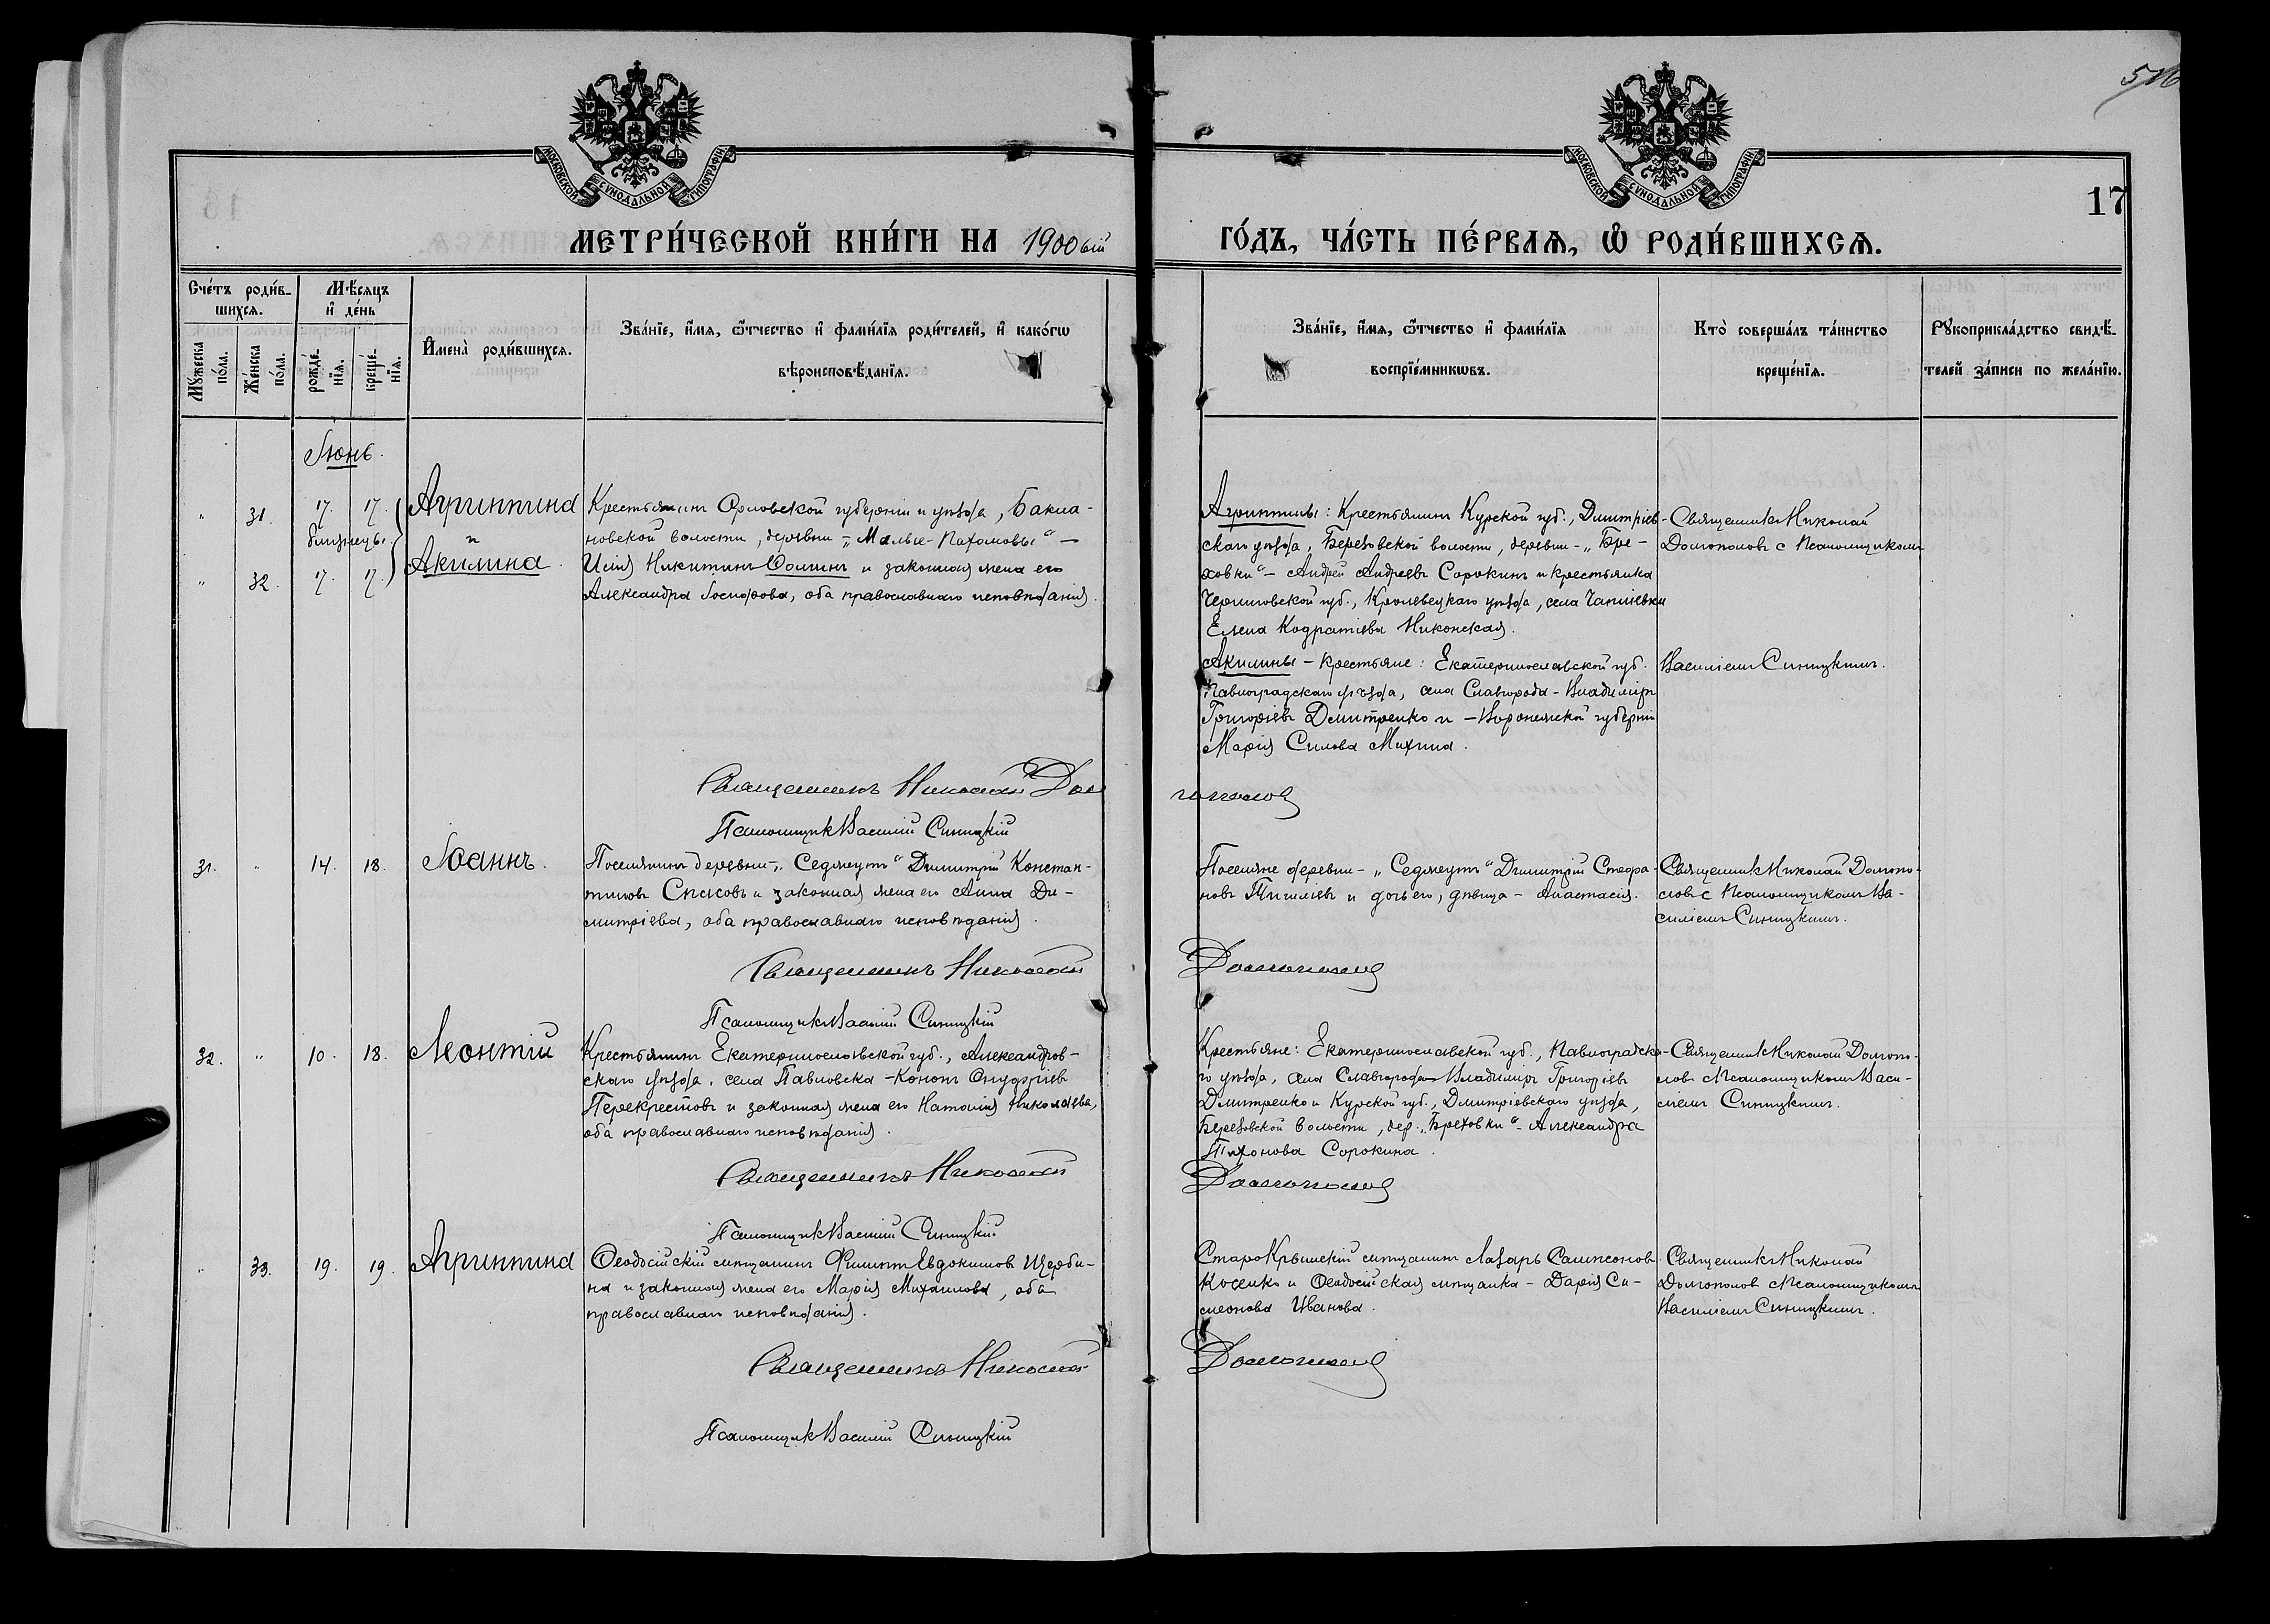 516
МОСКОВСКОЙ СУНОДАЛЬНОЙ ТИПОГРАФІИ
МОСКОВСКОЙ СУНОДАЛЬНОЙ ТИПОГРАФІИ
17
МЕТРИ́ЧЕСКОЙ КНИ́ГИ НА 1900ый
ГО́ДЪ, ЧА́СТЬ ПЕ́РВАѦ, Ѿ РОДИ́ВШИХСѦ.
Сче́тъ роди́в-
шихсѧ.
Мꙋ́жеска по́ла.
Же́нска по́ла.
Мѣ́сѧцъ
и҆ де́нь
рожде́-
нїѧ.
креще́-
нїѧ.
И҆мена̀ роди́вшихсѧ.
Зва́нїе, и҆́мѧ, ѻ҆́тчество и҆ фами́лїѧ роди́телей, и҆ како́гѡ
вѣроисповѣ́данїѧ.
Зва́нїе, и҆́мѧ, ѻ҆́тчество и҆ фами́лїѧ
воспрїе́мникѡвъ.
Кто̀ соверша́лъ та́инство
креще́нїѧ.
Рꙋкоприкла́дство свидѣ́-
телей за́писи по жела́нїю.
Іюнь.
" 31. 17. 17. Агриппина
близнецы. и
" 32. 17. 17. Акилина.
Крестьянинъ Орловской губерніи и уѣзда, Бакла-
новской волости, деревни - „Малые-Пахомовы“ -
Илія Никитинъ Ѳоминъ и законная жена его
Александра Іосифова, оба православнаго исповѣданія.
Агриппины: Крестьянинъ Курской губ., Димитріев-
скаго уѣзда, Березовской волости, деревни - „Бре-
ховки“ - Андрей Андреевъ Сорокинъ и крестьянка
Черниговской губ., Кролевецкаго уѣзда, села Чаплиевки
Елена Кодратіева Никонская.
Священникъ Николай
Долгополовъ с Псаломщикомъ
Акилины - Крестьяне: Екатеринославской губ.
Павлоградскаго уѣзда, села Славгорода - Владиміръ
Григорьевъ Дмитренко и - Воронежской губерніи
Марія Силова Михина.
Василіемъ Синицкимъ.
Священникъ Николай Дол
гополов
Псаломщикъ Василій Синицкій
31. " 14. 18. Іоаннъ.
Поселянинъ деревни - „Седжеутъ“ Димитрій Констан-
тиновъ Спасовъ и законная жена его Анна Ди-
митріева, оба православнаго исповѣданія.
Поселяне деревни - „Седжеутъ“ Димитрій Стефа-
новъ и дочь его, дѣвица - Анастасія.
Священникъ Николай Долгопо-
ловъ с Псаломщикомъ Ва-
силіемъ Синицкимъ.
Священникъ Николай
Долгополов
Псаломщикъ Василій Синицкій
32. " 10. 18. Леонтій
Крестьянинъ Екатеринославской губ., Александров-
скаго уѣзда, села Павловска - Кононъ Онуфріевъ
Перекрестовъ и законная жена его Наталія Николаева,
оба православнаго исповѣданія.
Крестьяне: Екатеринославской губ., Павлоградска-
го уѣзда, села Славгорода Владиміръ Григорьевъ
Дмитренко и Курской губ., Дмитріевскаго уѣзда,
Березовской волости, дер. „Бреховки“ - Александра
Тихонова Сорокина.
Священникъ Николай Долгопо-
ловъ с Псаломщикомъ Васи-
ліемъ Синицкимъ.
Священникъ Николай
Долгополов
Псаломщикъ Василій Синицкій
" 33. 19. 19. Агриппина
Ѳеодосійскій мѣщанинъ Филиппъ Евдокимовъ Щерби-
на и законная жена его Марія Михаилова, оба
православнаго исповѣданія.
СтароКрымскій мѣщанинъ Лазарь Сампсоновъ
Косенко и Ѳеодосійская мѣщанка - Дарія Си-
меонова Иванова.
Священникъ Николай
Долгополовъ с Псаломщикомъ
Василіемъ Синицкимъ.
Священникъ Николай
Долгополов
Псаломщикъ Василій Синицкій